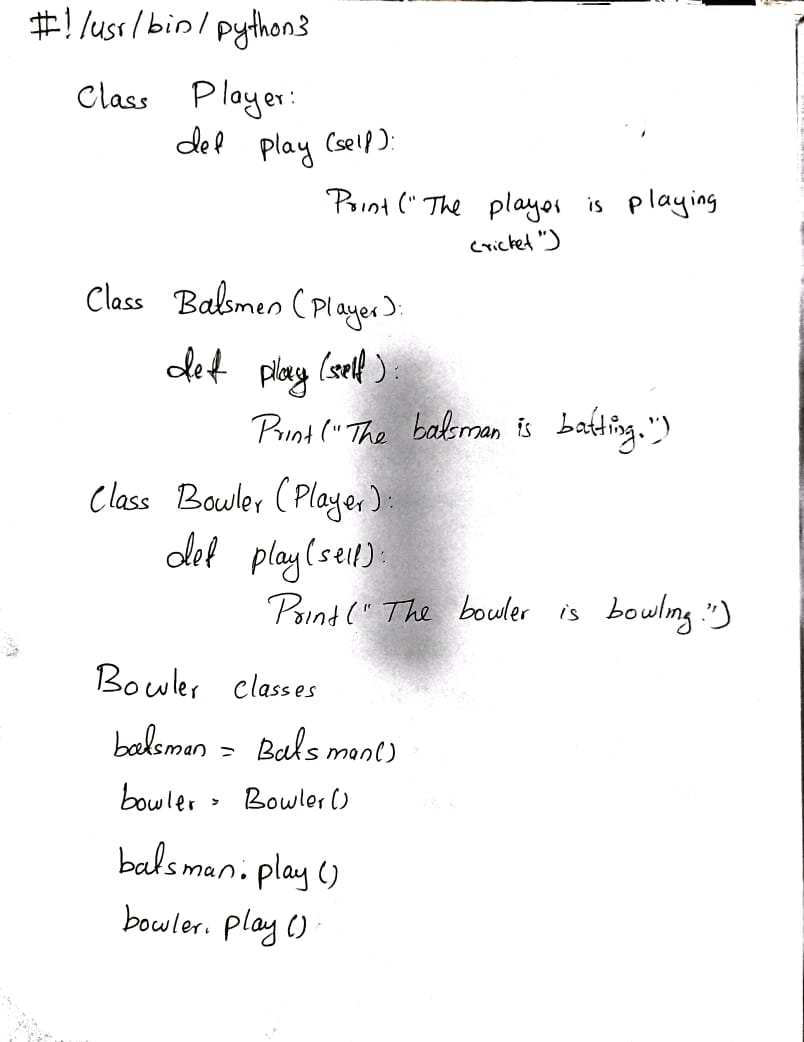 #!/usr/bin/python3
Class Player:
def play (self):
Print ("The player is playing
cricket")
Class Batsmen (Player):
def play (self):
Print ("The batsman is batting.")
Class Bowler (Player):
def play (self):
Print (" The bowler is bowling.")
Bowler classes
batsman = Batsman()
bowler = Bowler()
batsman.play ()
bowler. play ()